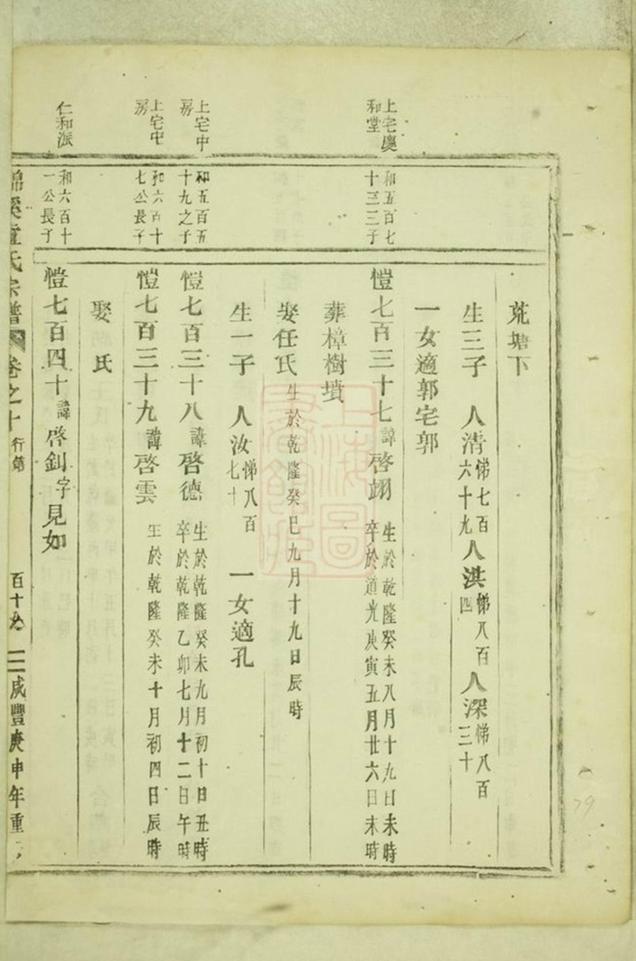 荒塘下
生三子　人清悌七百六十九人淇悌八百四　人深悌八百三十
一女適郭宅郭
上宅慶和堂
和五百七十三三子
愷七百三十七諱啓翊　生於乾隆癸未八月十九日未時卒於道光庚寅五月廿六日未時
葬樟樹墳
娶任氏生於乾隆癸巳九月十九日辰時
生一子　人汝悌八百七十　一女適孔
上宅中房
和五百五十九之子
愷七百三十八諱啓德　生於乾隆癸未九月初十日丑時卒於乾隆乙卯七月十二日午時
上宅中房
和六百十七公長子
愷七百三十九諱啓雲　生於乾隆癸未十月初四日辰時
娶　氏
仁和派
和六百十一公長子
愷七百四十諱啓釗字見如
氏宗譜　卷之十　行第　百十九　咸豐庚申年重
79